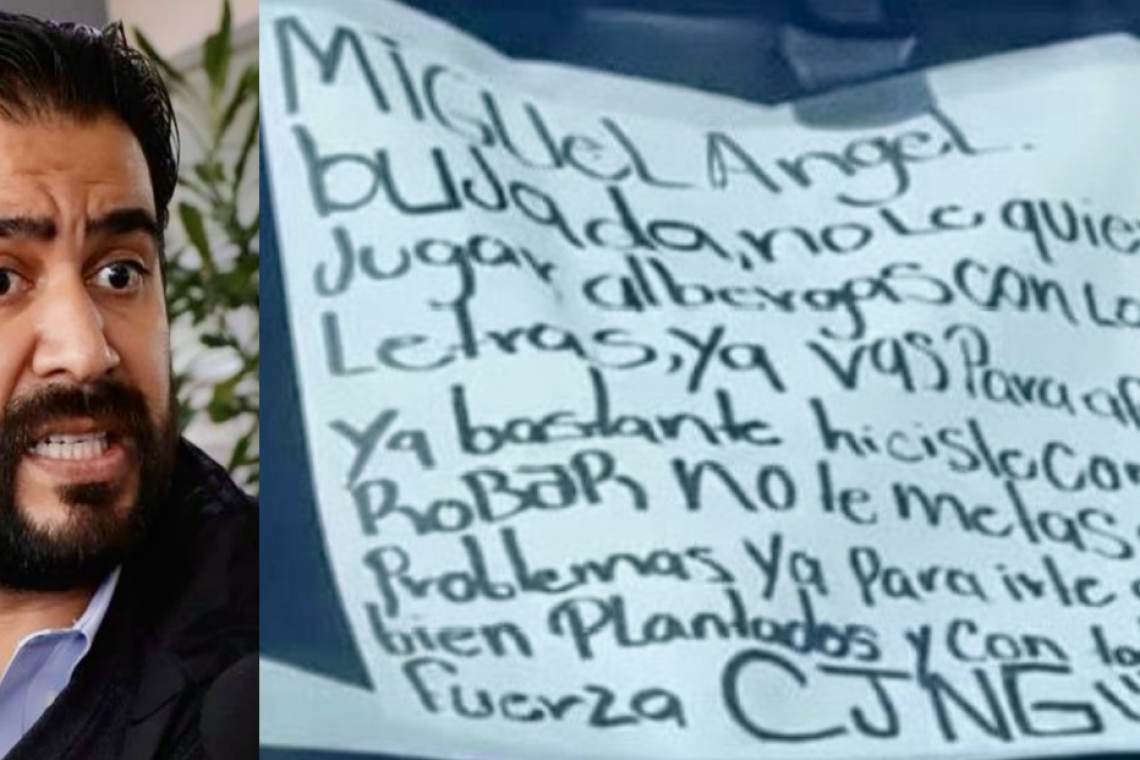 Miguel Angel.
bujada, no Le quie
Jugar albergas con La
Letras, ya vas Para
ya bastante hiciste Con
RoBaR no le metas
Problemas ya Para irte
bien PLantados y Con to
fuerza CJNG